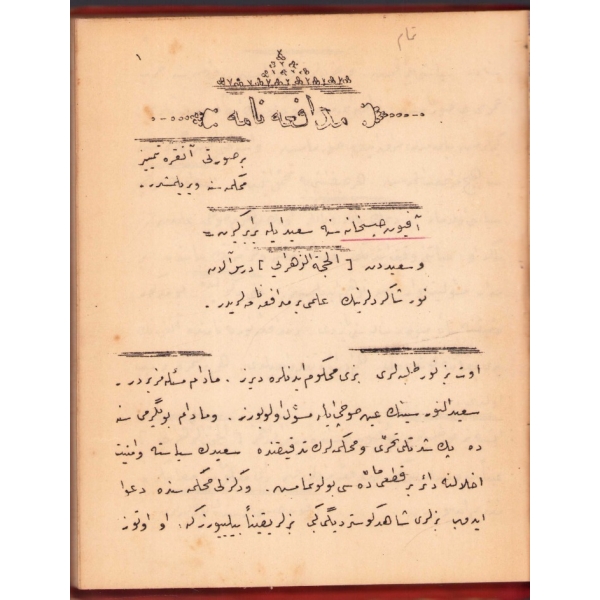 تمام
١
مدافعه نامه
بر صورتی آنقره تمییز
محکمه سنه ویریلمشدر.
آفیون حبسخانه سنه سعید ایله برابر گیرن =
و سعیددن [الحجة الزهراء] درس آلان
نور شاکردلرینك علمی بر مدافعه نامه لریدر.
اوت بز نور طلبه لری بزی محکوم ایدنلره دیرز. مادام مسئله بزیز در.
سعید النور سینك عین صوچی ایله مسؤل اولویورز. و مادام بو یگرمی سنه
ده پك شدتلی تحری و محکمه لرك تدقیقنده سعیدك سیاسته و امنیت
اخلالنه دائر بر قطعی ماده سی بولونمامش. و دکزلی محکمه سنده دعوا
ایدوب بزلری شاهد گوستردیگی گبی بزلر یقیناً بیلییورز که: او اوتوز